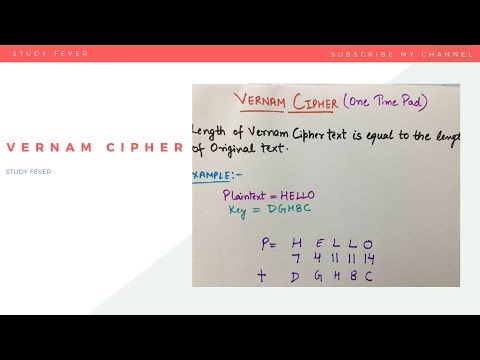 STUDY FEVER
SUBSCRIBE MY CHANNEL
VERNAM CIPHER
STUDY FEVER
VERNAM CIPHER (One Time Pad)
Length of Vernam Ciphertext is equal to the length
of Original text.
EXAMPLE:-
Plaintext = HELLO
Key = DGHBC
P= H E L L O
7 4 11 11 14
+ D G H B C